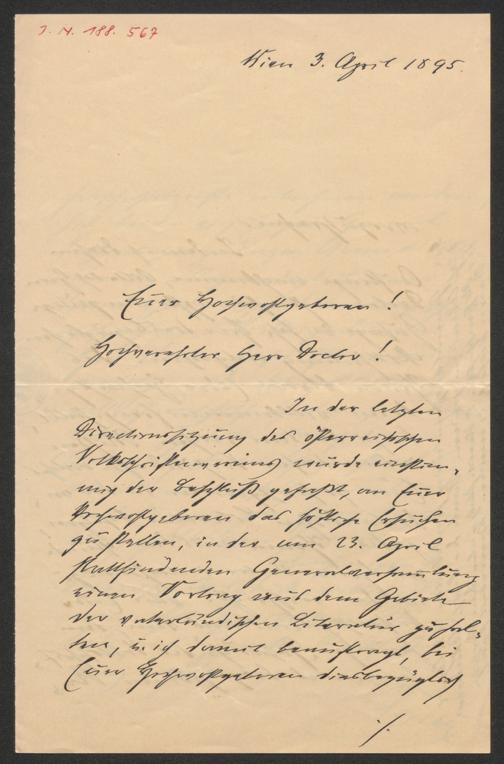 J. N. 188.567
Wien 3. April 1895.
Euer Hochwohlgeboren!
Hochverehrter Herr Doctor!
In der letzten
Directionssitzung des österreichischen
Volksschriftenvereines wurde einstim-
mig der Beschluß gefaßt, an Euer
Hochwohlgeboren das höfliche Ersuchen
zu stellen, in der am 23. April
stattfindenden Generalversammlung
einen Vortrag aus dem Gebiete
der vaterländischen Literatur zu hal-
ten, u. ich damit beauftragt, bei
Euer Hochwohlgeboren diesbezüglich
./.